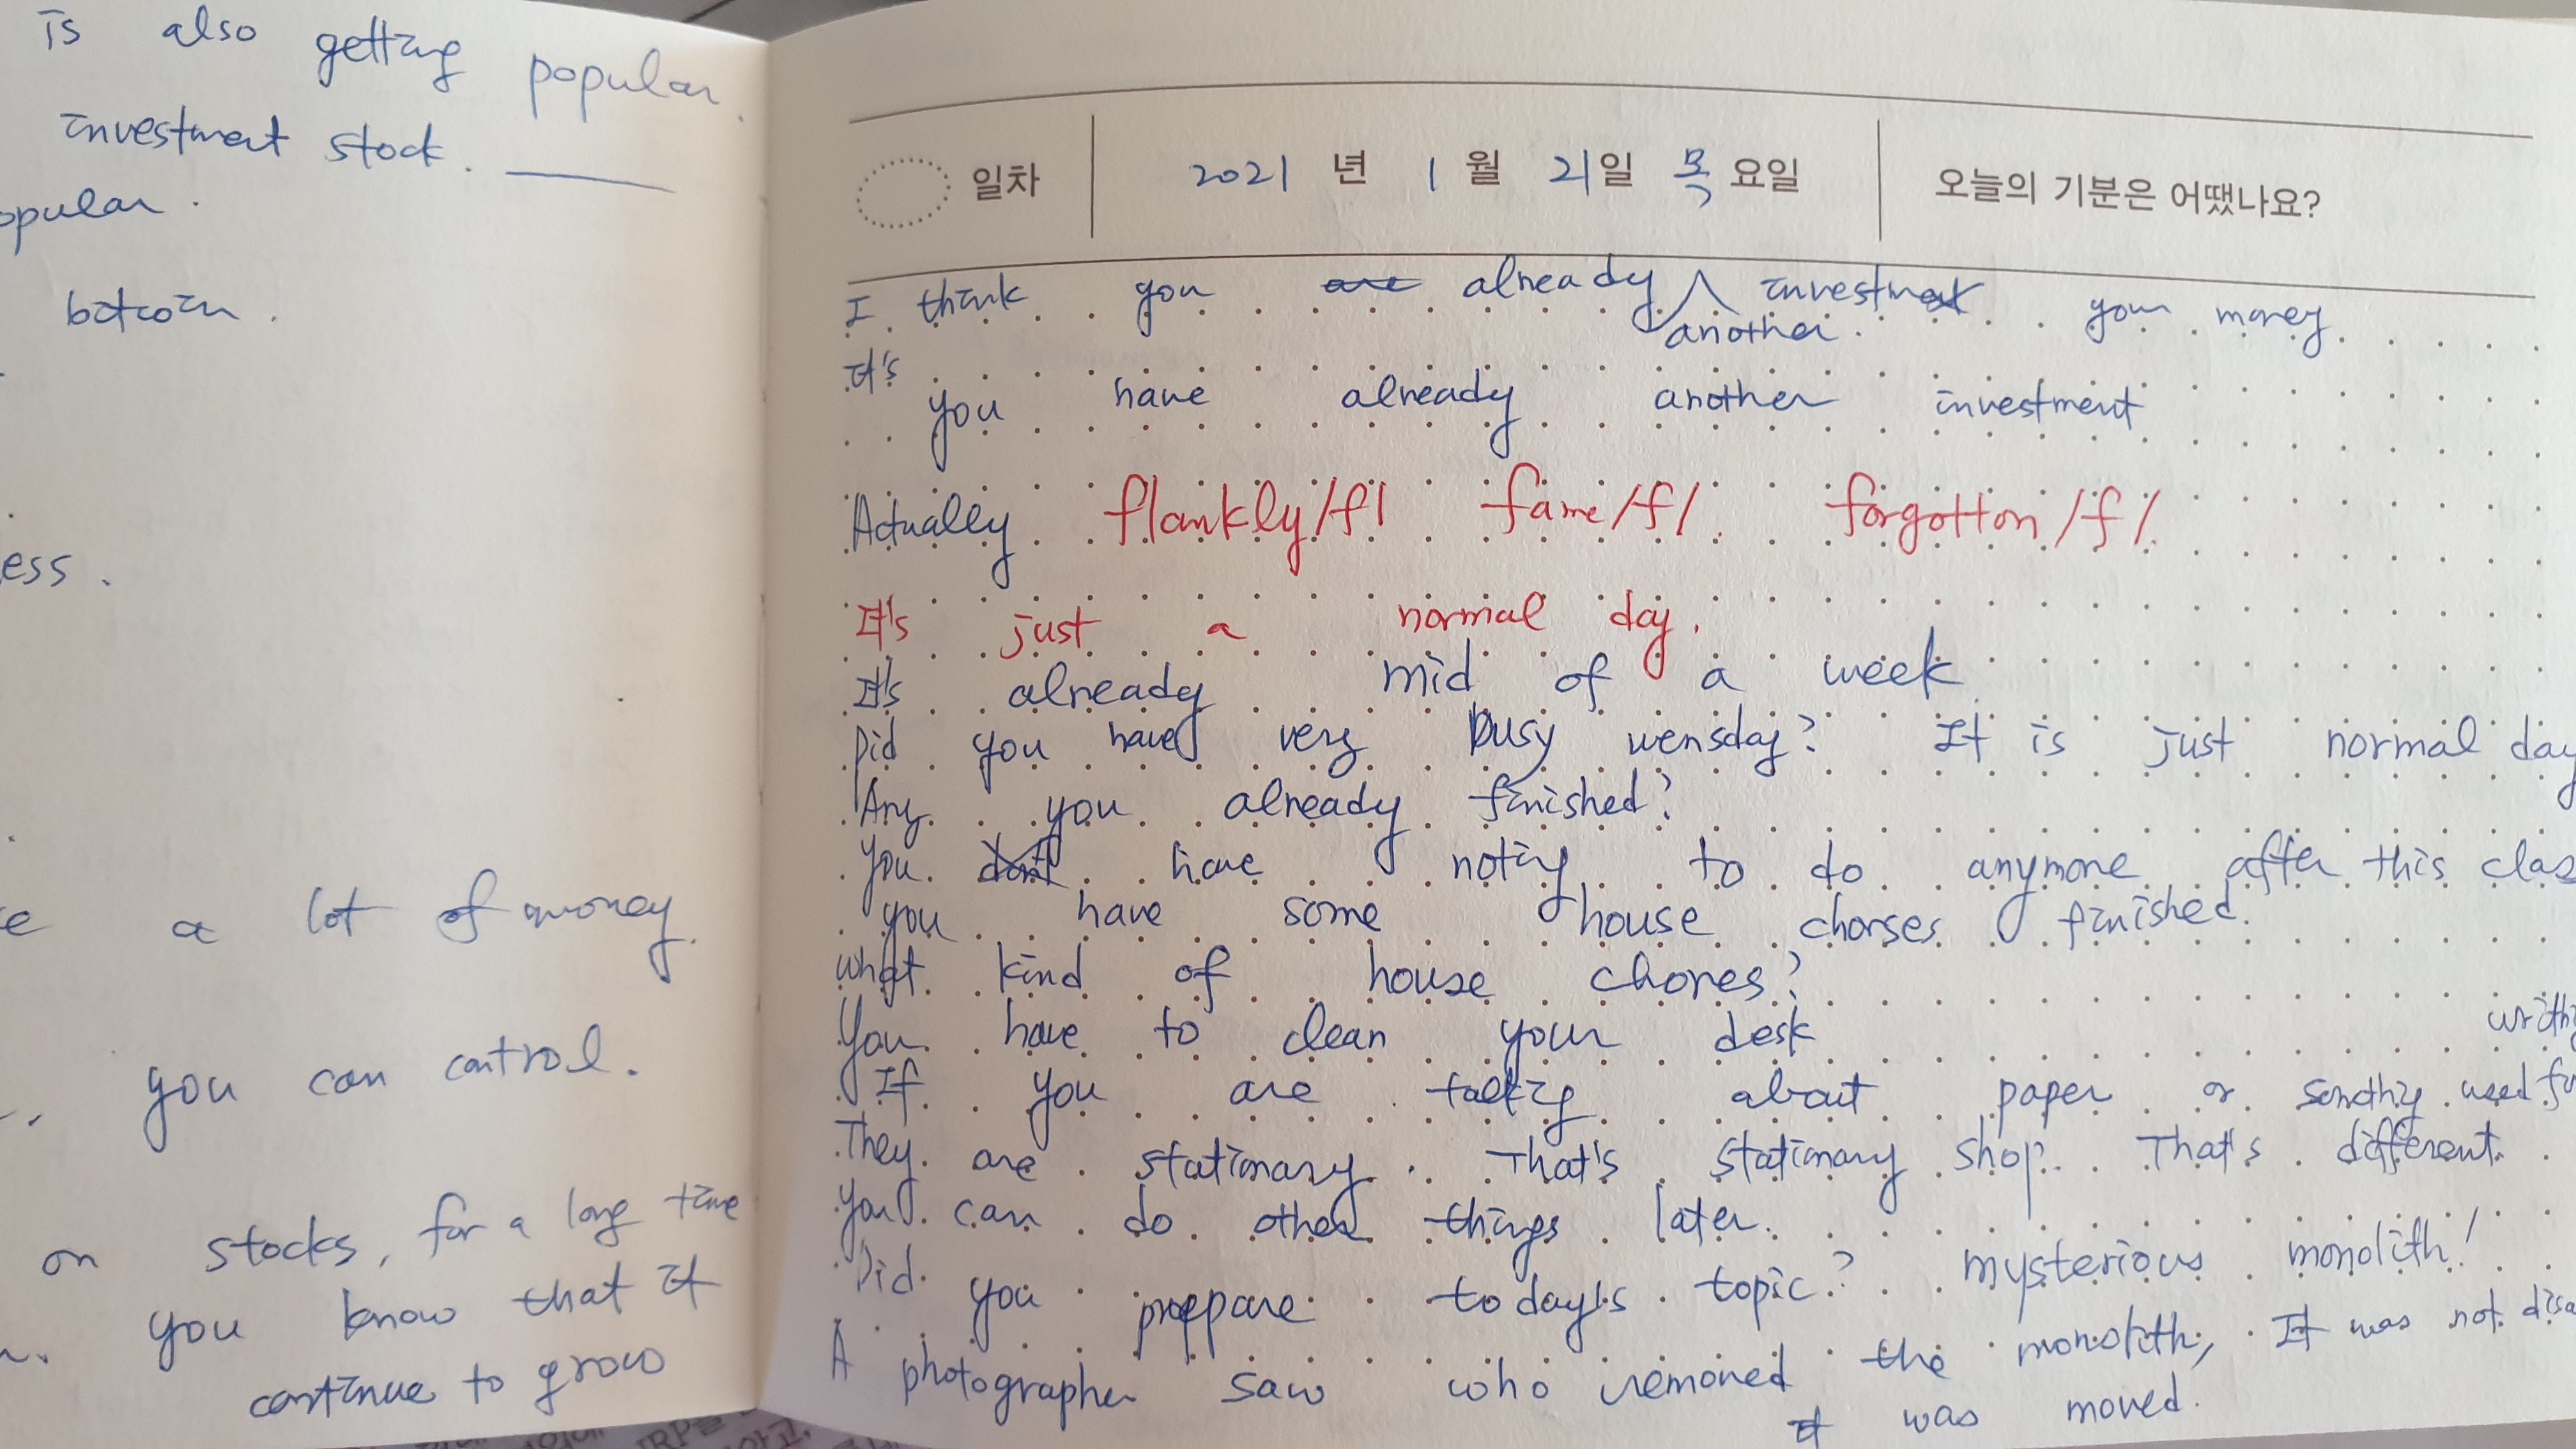 is also getting popular.
investment stock.
opular.
bitcoin.
ess.
e a lot of money.
you can control.
on stocks, for a long time
you know that it
continue to grow
일차 2021 년 1 월 21일 목 요일 오늘의 기분은 어땠나요?
I think you are already another investment your money
It's
you have already another investment
Actually flankly/f/ fame/f/ forgotton/f/
It's just a normal day.
It's already mid of a week
Did you have very busy wensday? It is just normal day
Any you already finished?
You don't have noting to do anymore after this clas
you have some house chorses finished.
what kind of house chores?
You have to clean your desk
If you are talking about paper or somethig used for
They are stationary. That's stationary shop. That's different.
You can do other things later.
Did you preppare today's topic? mysterious monolith!
A photographer saw who removed the monolith, It was not disa
it was moved.